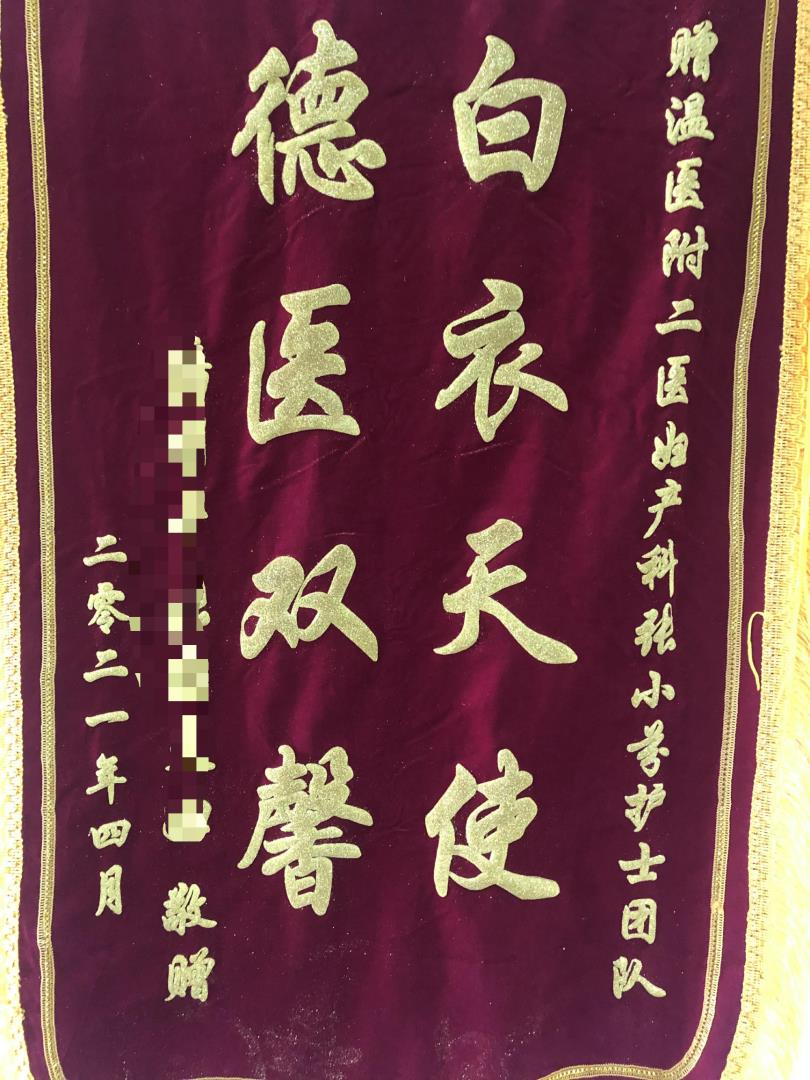 赠温医附二医妇产科张小芬护士团队
白衣天使
德医双馨
敬赠
二零二一年四月